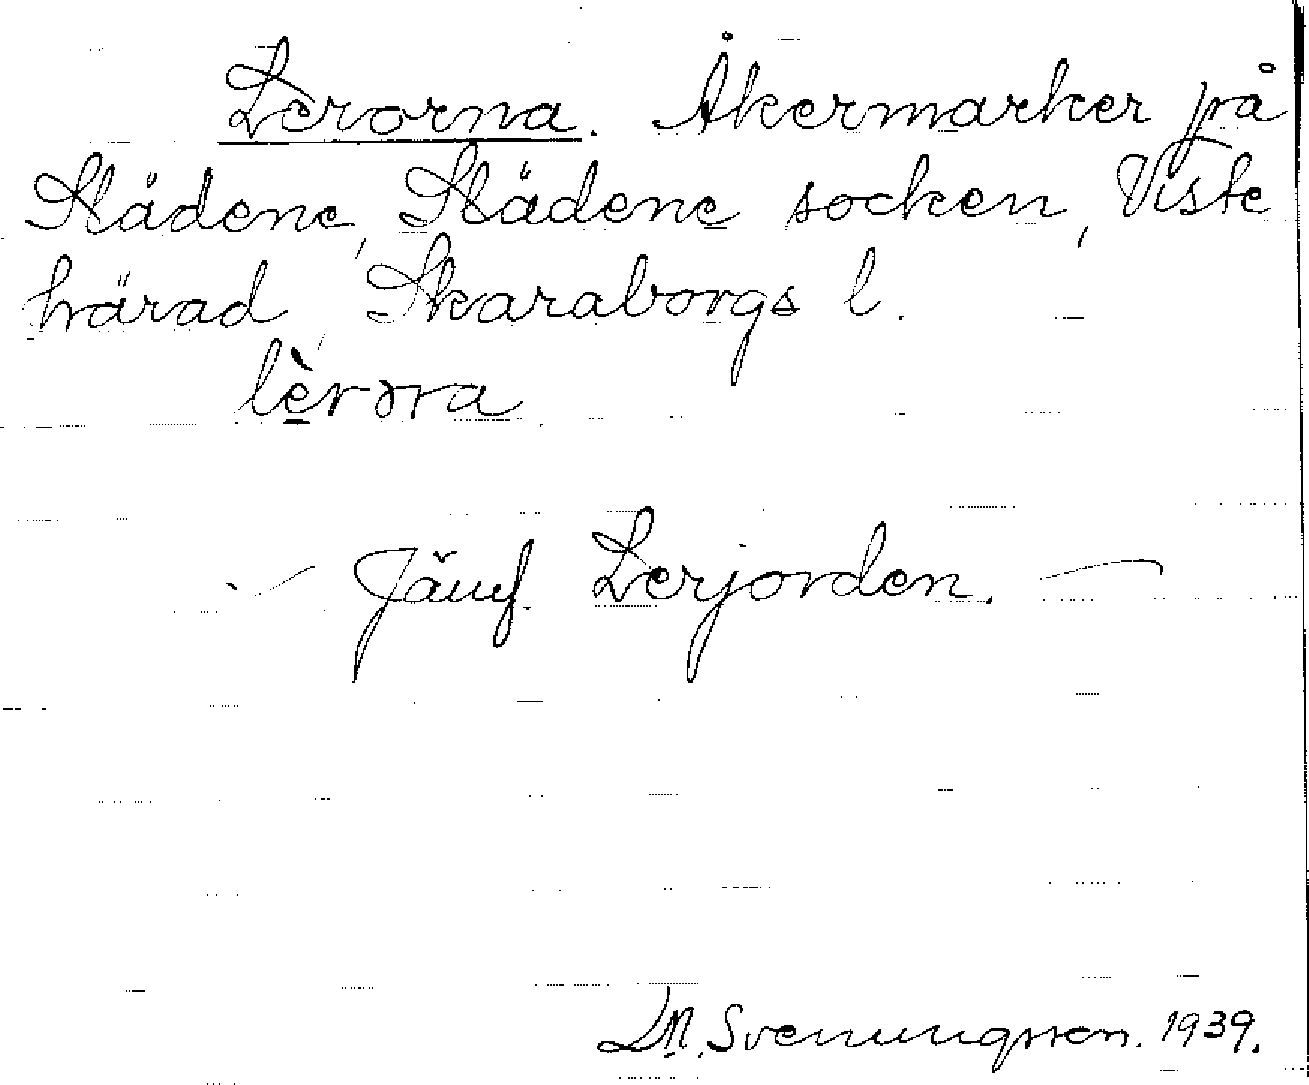 Lerorna. Åkermarker på
Slädene, Slädene socken, Viste
härad, Skaraborgs l.
lèrơra
Jämf. Lerjorden.
Svenungsson. 1939.